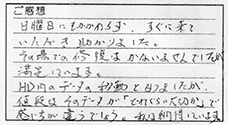 ご感想
日曜日にもかかわらず、すぐに来て
いただき助かりました。
その場での修復はかないませんでしたが
満足しています。
HD内のデータの移動と思うましたが、
値段はそのデータが「どれくらい大切か」で
違いが違うでしょう。私は納得しています